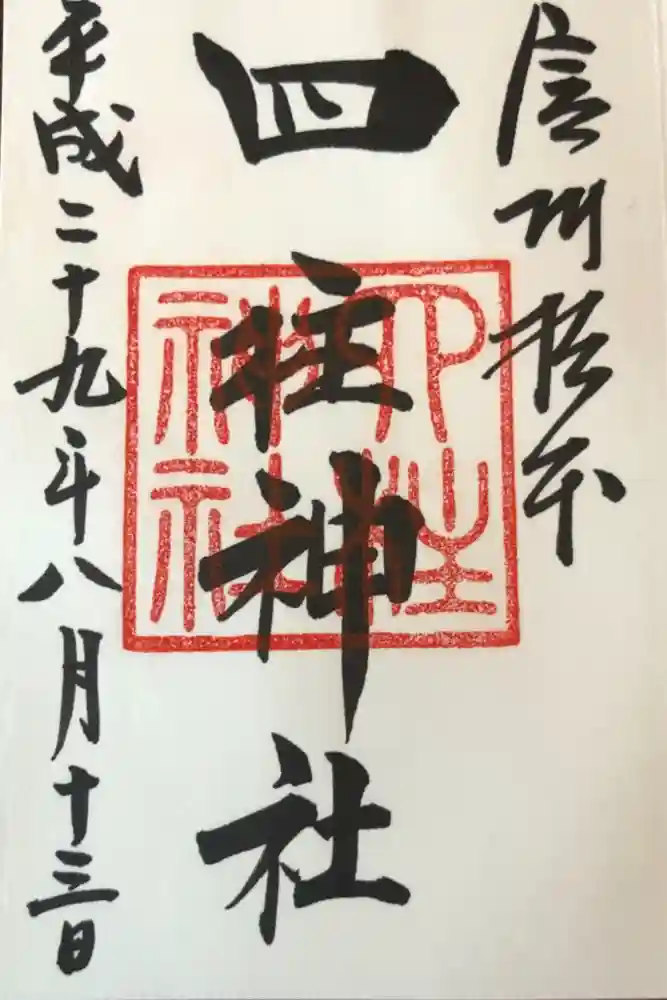 信州松本
四柱神社
四柱神社
平成二十九年八月十三日